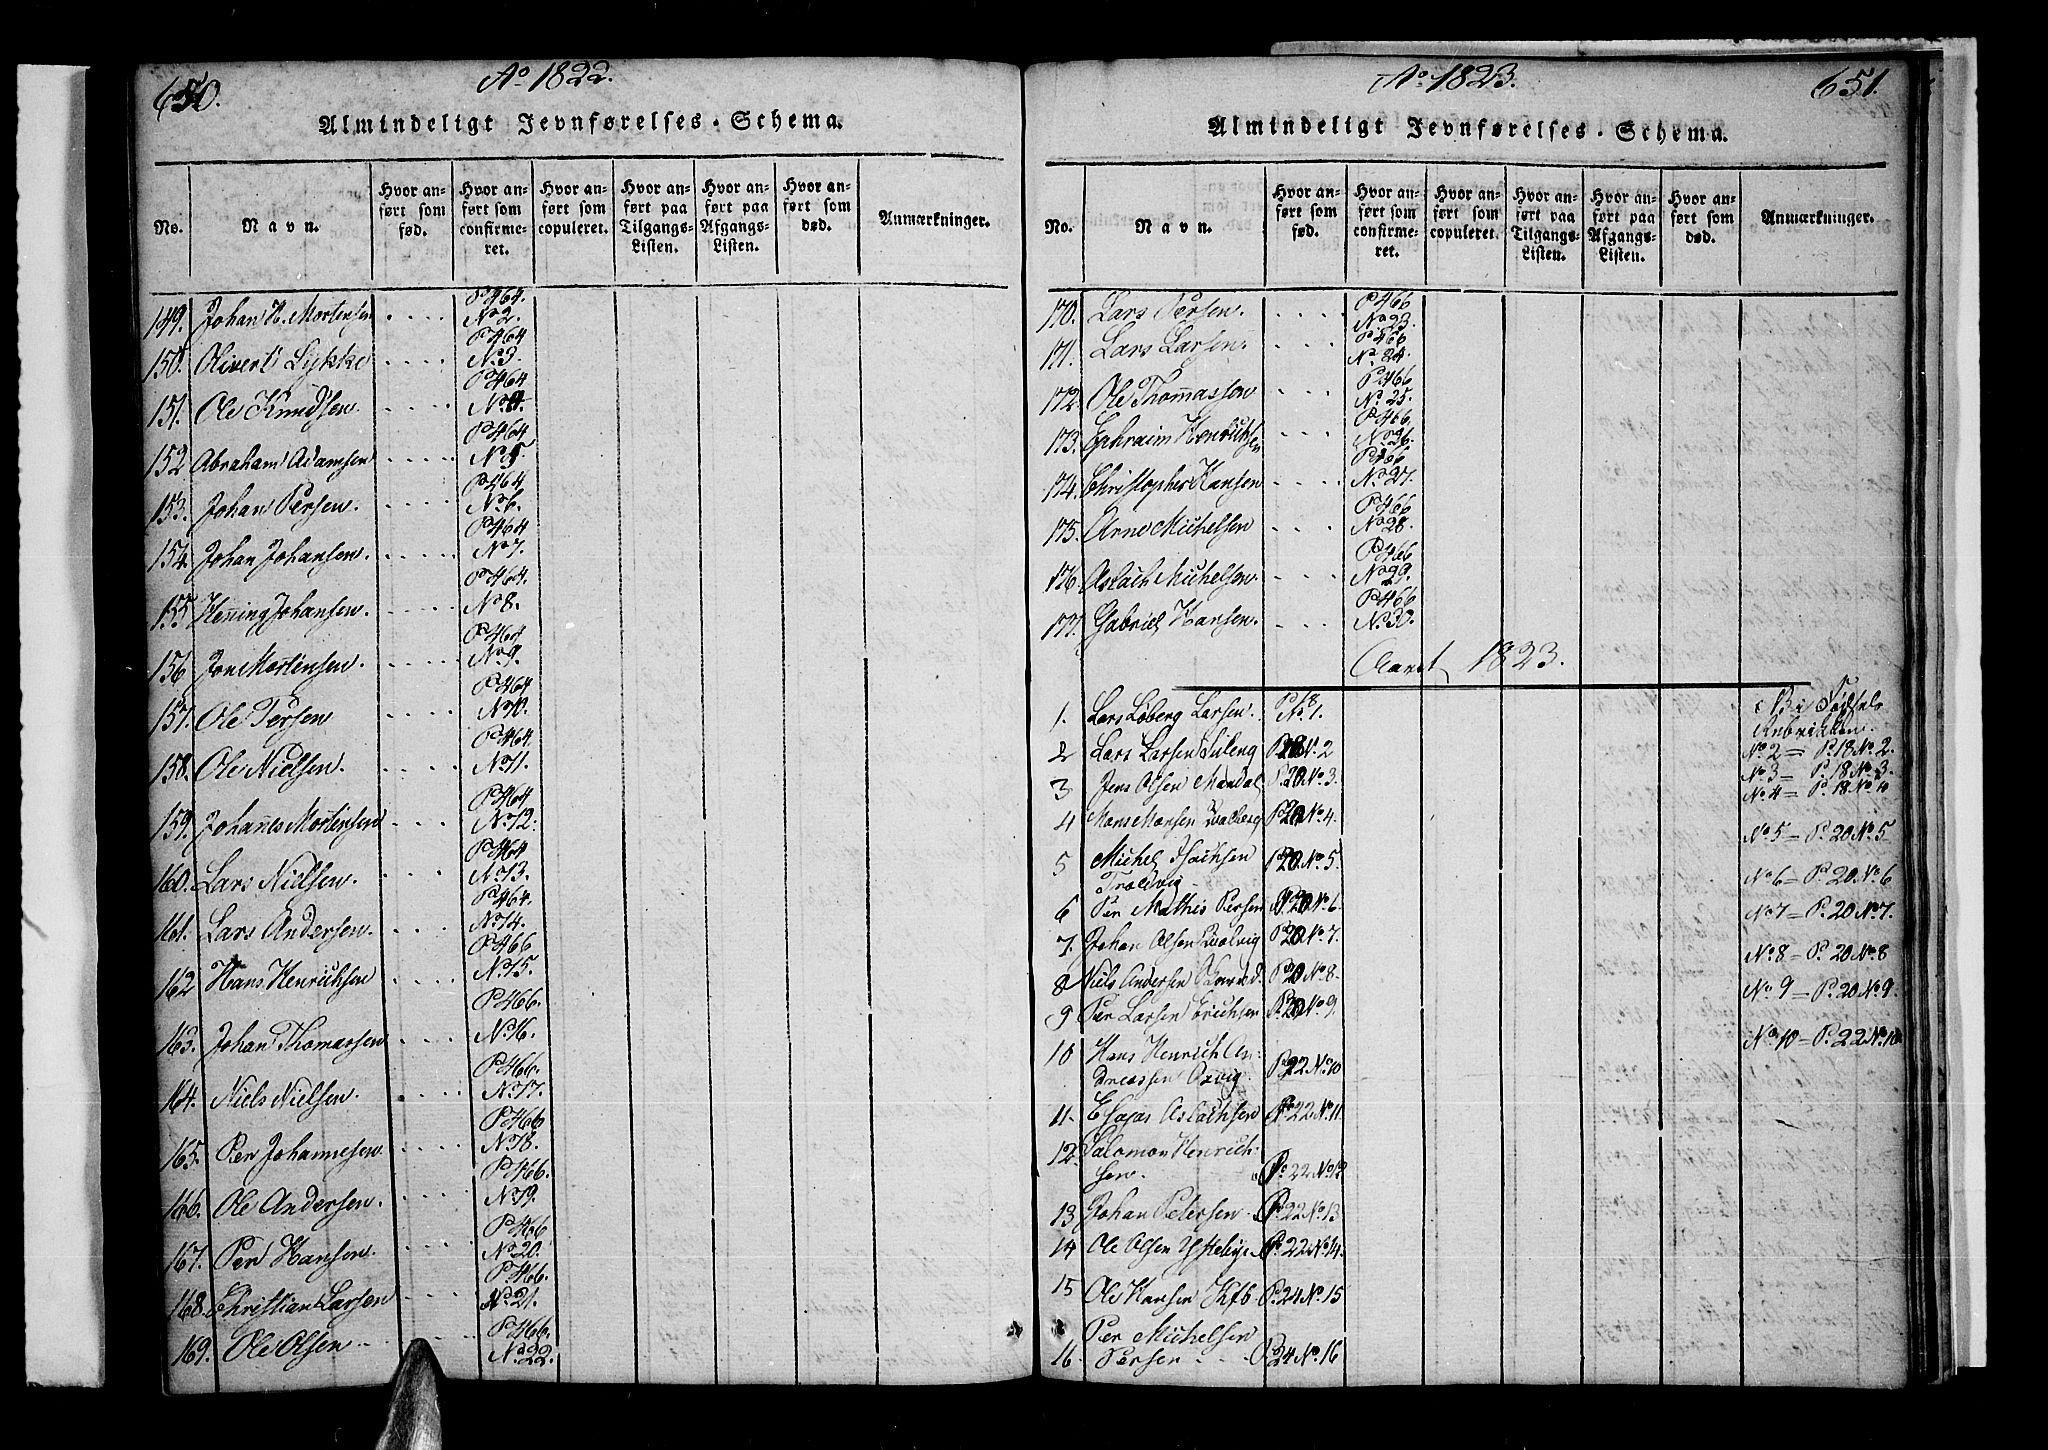 650.
Ao 1822.
Almindeligt Jevnførelses-Schema.
No.
Navn.
Hvor anført som fød.
Hvor anført som confirmeret.
Hvor anført som copuleret.
Hvor anført paa Tilgangs-Listen.
Hvor anført paa Afgangs-Listen.
Hvor anført som død.
Anmærkninger.
149. Johan H. Mortensen P 464. No 2.
150. Olivert Lykke P 464 No. 3.
151. Ole Knudsen. P. 464 No. 4.
152 Abraham Adamsen P 464 No 5
153. Johan Persen. P 464 No 6.
154. Johan Johansen. P 464 No 7.
155 Henning Johansen. P 464. No 8.
156 Jon Mortensen. P 464 No. 9.
157. Ole Persen P 464 No 10.
158. Ole Nielsen. P 464. No 11.
159. Johanes Mortensen P 464 No 12.
160. Lars Nielsen. P 464 No 13.
161. Lars Andersen. P 464. No 14.
162 Hans Henrichsen P 466 No 15.
163. Johan Thomassen P 466. No 16.
164. Niels Nielsen. P 466. No 17.
165. Per Johannesen P 466 No 18.
166. Ole Andersen. P 466. No 19.
167. Per Hansen. P 466 No 20.
168. Christian Larsen P 466. No 21.
169. Ole Olsen P 466. No. 22.
651.
Ao 1823.
Almindeligt Jevnførelses-Schema.
No.
Navn.
Hvor anført som fød.
Hvor anført som confirmeret.
Hvor anført som copuleret.
Hvor anført paa Tilgangs-Listen.
Hvor anført paa Afgangs-Listen.
Hvor anført som død.
Anmærkninger.
170. Lars Persen. P 466 No 23.
171. Lars Larsen. P 466 No. 24.
172. Ole Thomassen P 466 No. 25.
173. Ephraim Henrichsen P 466. No 26.
174. Christopher Hansen P 466 No 27.
175. Arne Michelsen P 466 No 28.
176. Aslach Michelsen. P 466 No 29.
177. Gabriel Hansen. P 466 No 30.
Aaret 1823.
1. Lars Løberg Larsen. P. 18 No. 1. Fødsels
Rubrikken.
2 Lars Larsen P. 18 No. 2 No. 2 = P. 18 No. 2.
3. Jens Olsen Mandal P. 20 No. 3. No. 3 = P. 18 No. 3.
4 Mons Monsen P. 20 No. 4. No. 4 = P. 18 No. 4
5 Michel Isachsen P. 20 No. 5. No 5 = P. 20 No. 5
Troldvig
6 Per Mathis Persen P. 20 No. 6. No 6 = P. 20 No. 6
7. Johan Olsen P. 20 No. 7. No 7 = P. 20 No 7.
8 Niels Andersen P. 20 No. 8. No. 8 = P. 20 No. 8
9 Per Larsen Erichsen P. 20 No. 9. No. 9 = P. 20 No. 9.
10 Hans Henrich An-
dreassen P. 22 No. 10 No. 10 = P. 22 No. 10
11. Esajas Aslachsen P. 22 No. 11
12. Salomon Henrich-
sen. P. 22 No. 12
13 Johan Petersen P. 22 No. 13
14 Ole Olsen P. 22 No. 14.
15 Ole Hansen P. 24 No. 15
16. Per Michelsen
Persen P. 24 No. 16